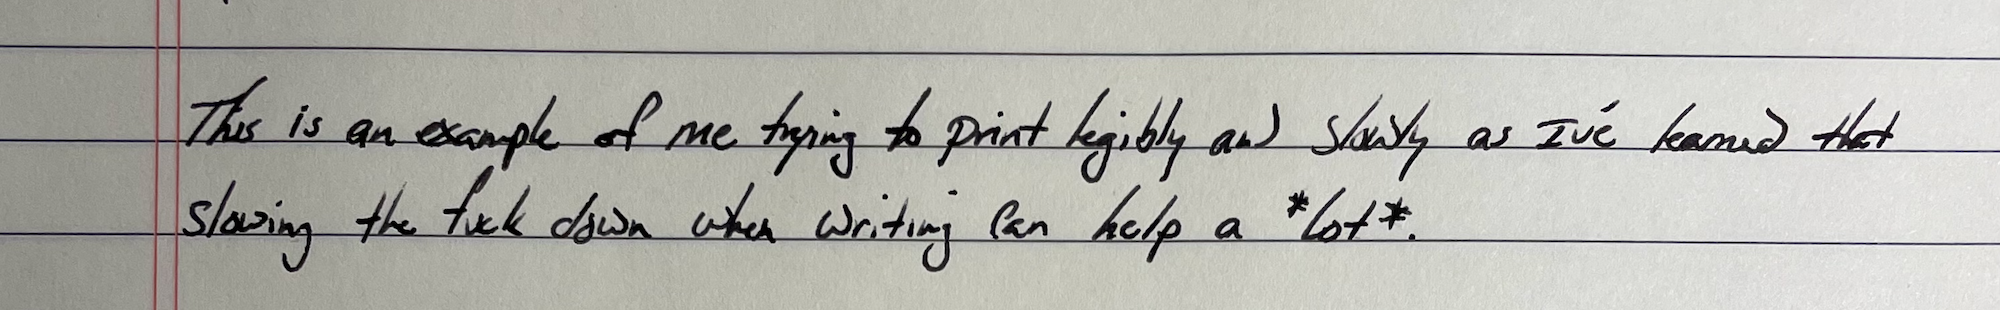 This is an example of me trying to print legibly and slowly as I've learned that
slowing the fuck down when writing can help a *lot*.